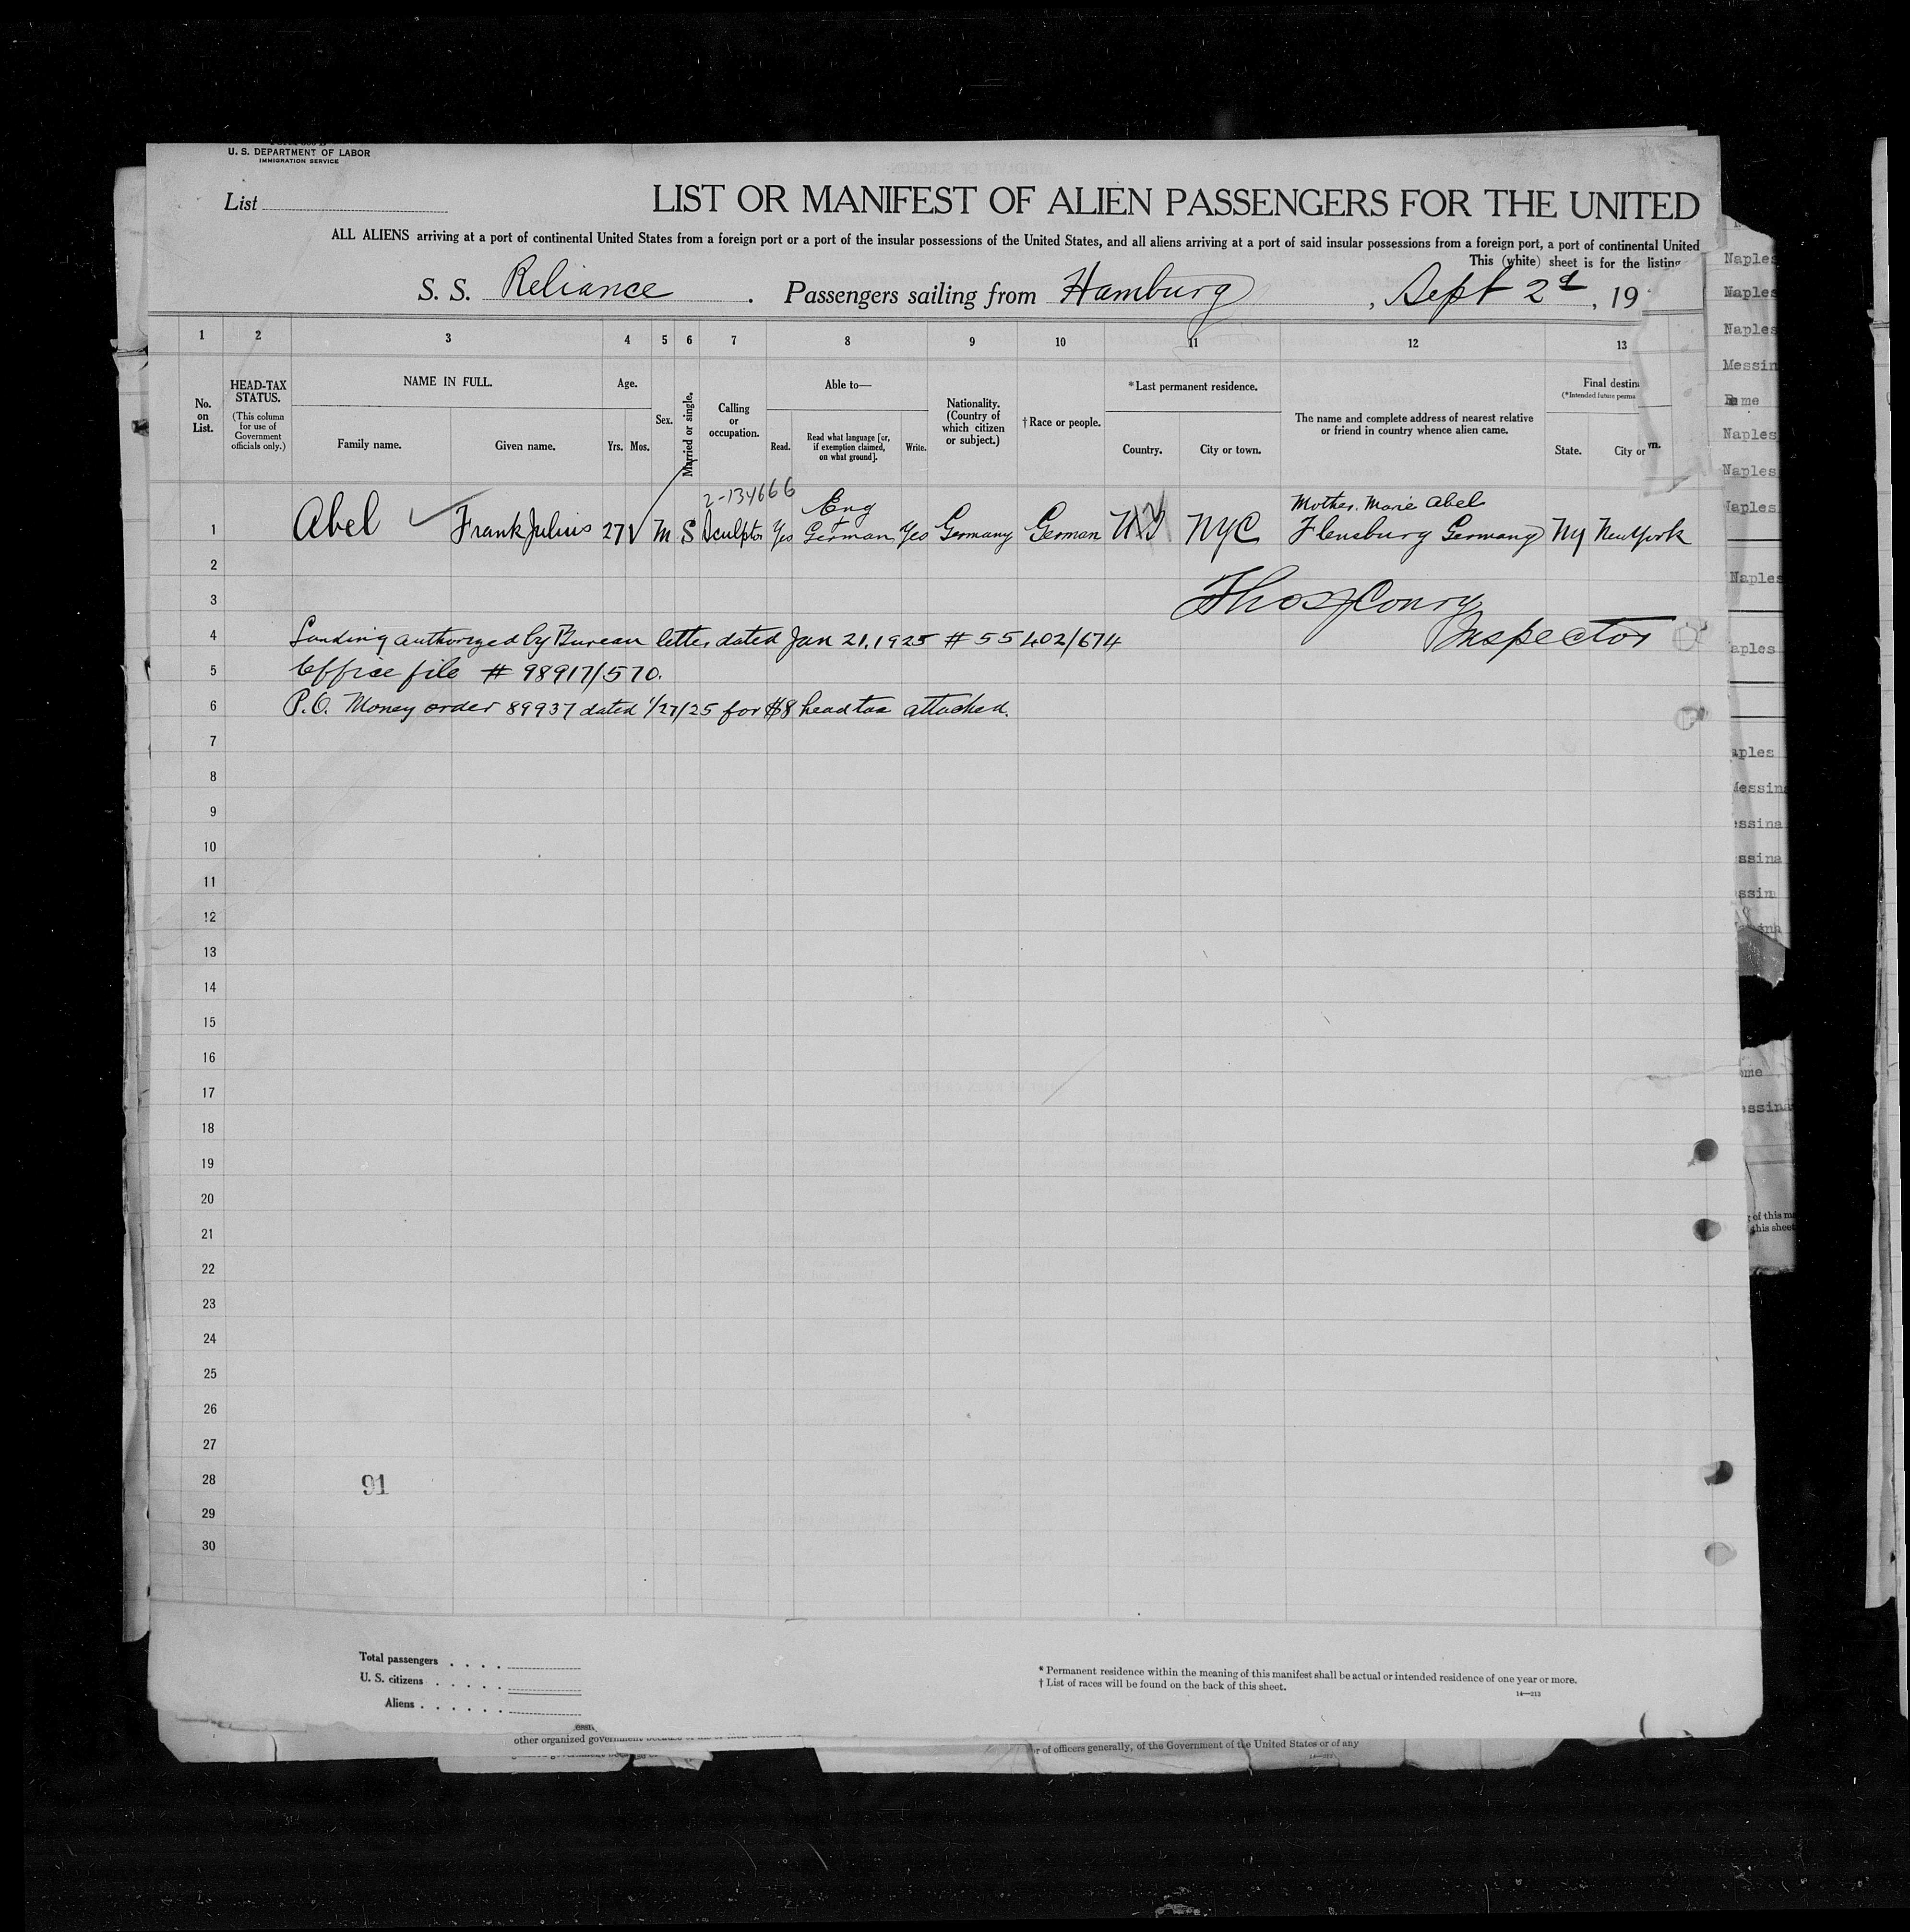 U. S. DEPARTMENT OF LABOR
IMMIGRATION SERVICE
List
LIST OR MANIFEST OF ALIEN PASSENGERS FOR THE UNITED
ALL ALIENS arriving at a port of continental United States from a foreign port or a port of the insular possessions of the United States, and all aliens arriving at a port of said insular possessions from a foreign port, a port of continental United
This (white) sheet is for the listing
S. S. Reliance . Passengers sailing from Hamburg , Sept 2d , 19
1 2 3 4 5 6 7 8 9 10 11 12 13
No. on List.
HEAD-TAX STATUS.
(This column for use of Government officials only.)
NAME IN FULL.
Family name. Given name.
Age.
Yrs. Mos.
Sex.
Married or single.
Calling or occupation.
Able to—
Read. Read what language [or, if exemption claimed, on what ground]. Write.
Nationality. (Country of which citizen or subject.)
† Race or people.
*Last permanent residence.
Country. City or town.
The name and complete address of nearest relative or friend in country whence alien came.
Final destin
(*Intended future perma
State. City or wn.
2-134666
Eng
Mother. Marie Abel
1 Abel Frank Julius 27 M S Sculptor Yes German Yes Germany German US NYC Flensburg Germany NY New York
2
3 Thos J Conry
Inspector
4 Landing authorized by Bureau letter dated Jan 21, 1925 # 55402/674
5 Office file # 98917/570.
6 P.O. Money order 89937 dated 1/27/25 for $8 head tax attached.
7
8
9
10
11
12
13
14
15
16
17
18
19
20
21
22
23
24
25
26
27
28
91
29
30
Total passengers
U. S. citizens
Aliens
* Permanent residence within the meaning of this manifest shall be actual or intended residence of one year or more.
† List of races will be found on the back of this sheet.
14—213
other organized government
r of officers generally, of the Government of the United States or of any
Naples
Naples
Naples
Messin
Rome
Naples
Naples
Naples
Naples
aples
aples
Messina
essina
ssina
ssin
ome
essina
of this ma
this sheet